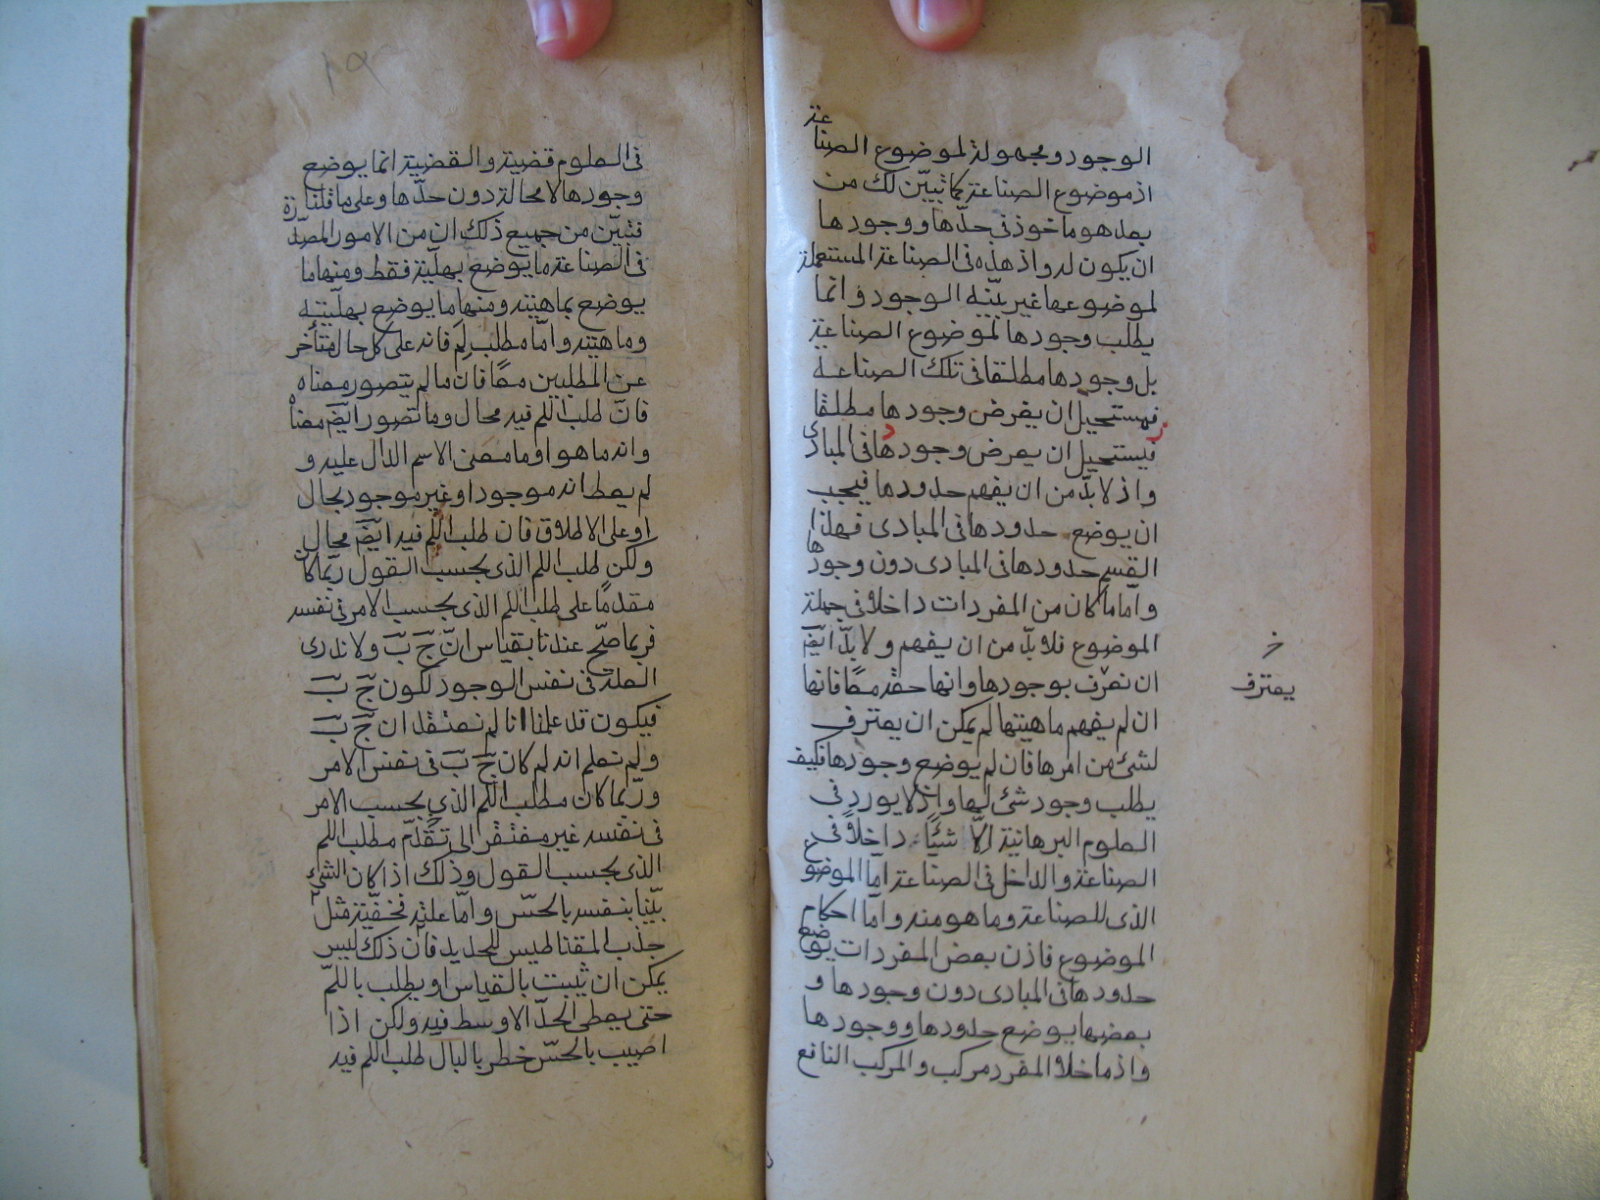 الوجود ومجهولة لموضوع الصناعة
اذ موضوع الصناعة كما نبيّن لك من
بعد هو ماخوذ فى حدّها ووجودها
ان يكون له واذ هذه فى الصناعة المستعملة
لموضوعها غير بيّنة الوجود وانّما
يطلب وجودها لموضوع الصناعة
بل وجودها مطلقا فى تلك الصناعة
فيستحيل ان يفرض وجودها مطلقا
فيستحيل ان يفرض وجودها فى المبادى
واذ لا بدّ من ان يفهم حدودها فيجب
ان يوضع حدودها فى المبادى فهذا
القسم حدودها فى المبادى دون وجودها
وامّا ما كان من المفردات داخلا فى جملة
الموضوع فلا بدّ من ان يفهم ولا بدّ ايضً
ان نعرّف بوجودها وانها حقة معًا فانها
خ
يعترف
ان لم يفهم ماهيتها لم يمكن ان يعترف
لشئ من امرها فان لم يوضع وجودها فكيف
يطلب وجود شئ لها واذ لا يورد فى
العلوم البرهانية الّا شيئًا داخلاً فى
الصناعة والداخل فى الصناعة امّا الموضوع
الذى للصناعة وما هو منه وامّا احكام
الموضوع فاذن بعض المفردات يوضع
حدودها فى المبادى دون وجودها و
بعضها يوضع حدودها ووجودها
واذ ما خلا المفرد مركب والمركب النافع
فى العلوم قضية والقضية انما يوضع
وجودها لا محالة دون حدّها وعلى ما قلنا
فتبيّن من جميع ذلك ان من الامور المصدّرة
فى الصناعة ما يوضع بهليّة فقط ومنها ما
يوضع بماهيته ومنها ما يوضع بهليّته
وماهيّته وامّا مطلب لِمَ فانه على كل حال متأخر
عن المطلبين معًا فان ما لم يتصور معناه
فانّ طلب اللم فيه محال وما تصور ايضً معناه
وانه ما هو او ما معنى الاسم الدال عليه و
لم يعط انه موجود او غير موجود بحال
او على الاطلاق فان طلب اللم فيه ايضً محال
ولكن طلب اللم الذى بحسب القول ربّما كان
مقدمًا على طلب اللم الذى بحسب الامر فى نفسه
فربما صحّ عندنا بقياس انّ جَ بَ ولا ندرى
العلّة فى نفس الوجود لكون جَ بَ
فيكون قد علمنا انا لم نعتقد ان جَ بَ
ولم نعلم انه لم كان جَ بَ فى نفس الامر
وربّما كان مطلب اللم الذى بحسب الامر
فى نفسه غير مفتقر الى تقدّم مطلب اللم
الذى بحسب القول وذلك اذا كان الشئ
بيّنا بنفسه بالحسّ وامّا علته فخفيّة مثل
جذب المقناطيس للحديد فانّ ذلك ليس
يمكن ان يثبت بالقياس او يطلب باللّم
حتى يعطى الحدّ الاوسط فيه ولكن اذا
اصيب بالحسّ خطر بالبال طلب اللم فيه